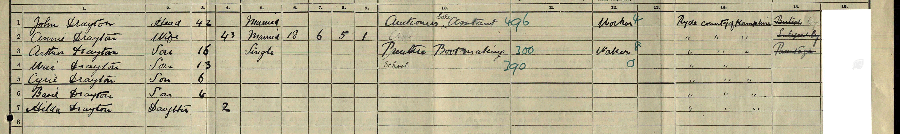 1 John Drayton Head 42 Married Auctioneers Assistant 496 Worker Ryde county of Hampshire
2 Annie Drayton Wife 43 Married 18 6 5 1 " " " "
3 Arthur Drayton Son 16 Single Bootmaking 300 Worker " " " "
4 Drayton Son 13 School 390 0 " " "
5 Cyril Drayton Son 6 " " "
6 Basil Drayton Son 4 " " "
7 Hilda Drayton Daughter 2 " " "
8